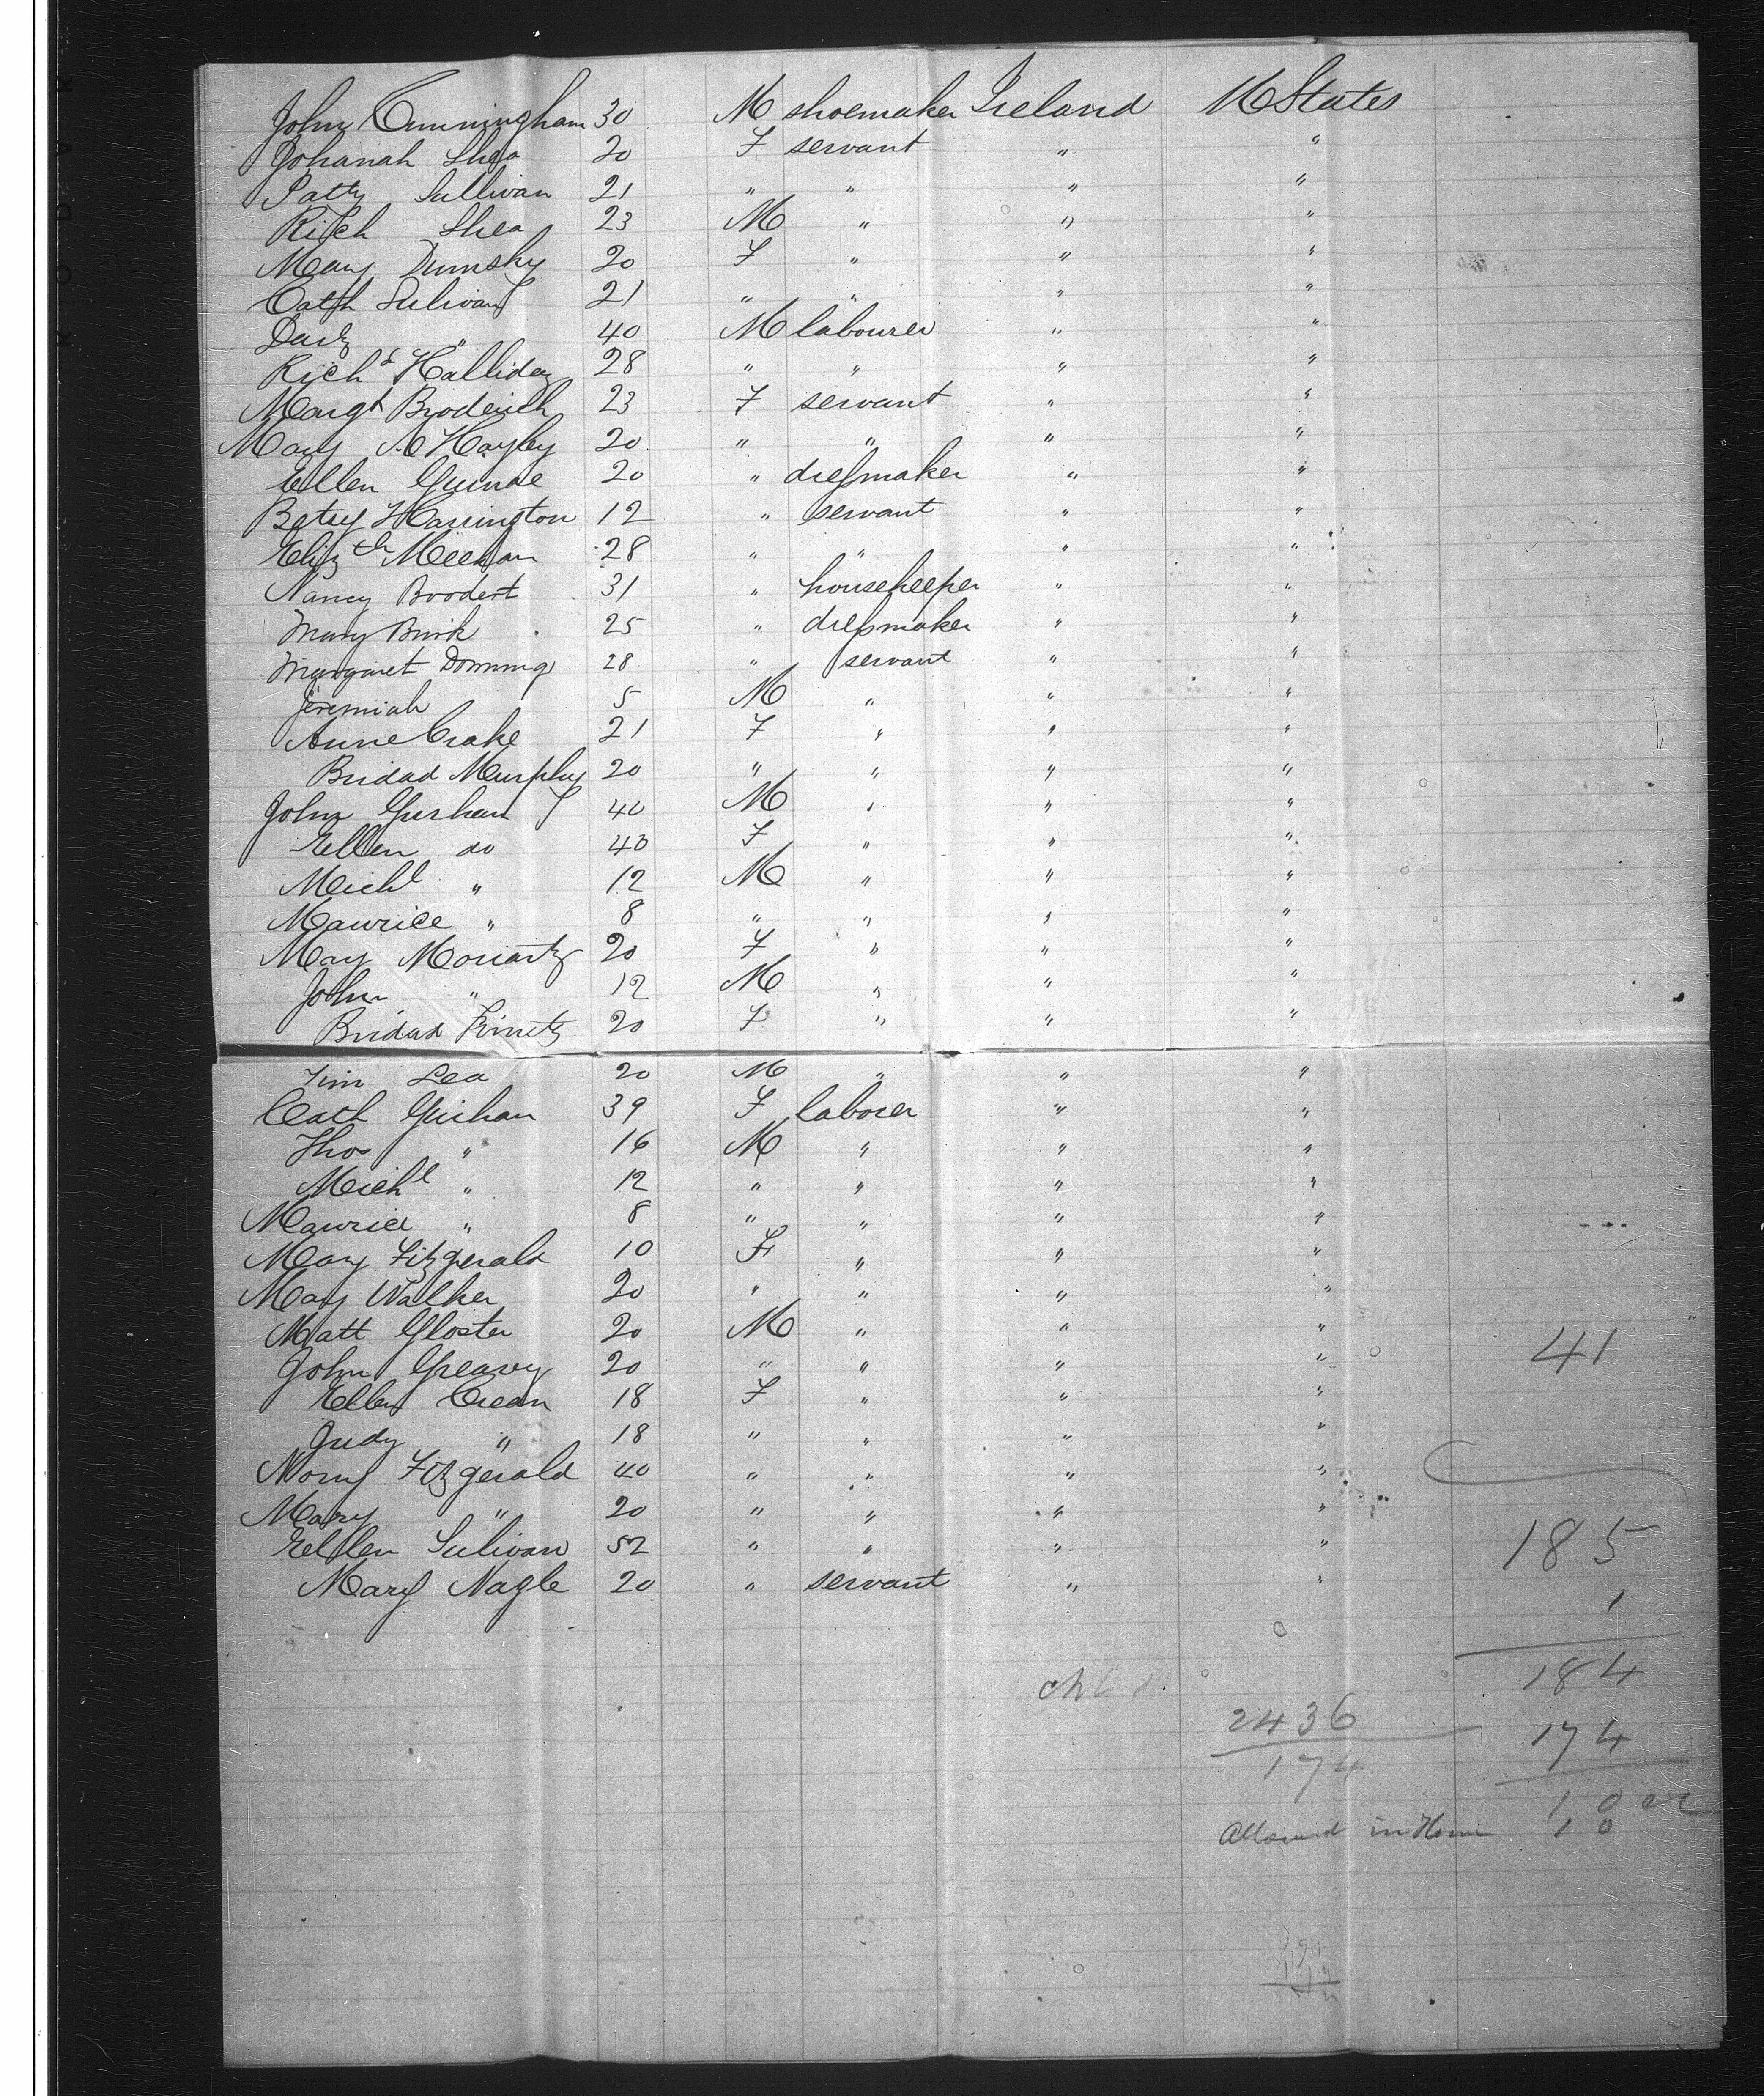 John Cunningham 30 M shoemaker Ireland U States
Johanah Shea 20 F servant " "
Patty Sullivan 21 " " " "
Rich Shea 23 M " " "
Mary 20 F " " "
Cath Sulivan 21 " " " "
" 40 M labourer " "
Richd Halliday 28 " " " "
Margt Broderick 23 F servant " "
Mary 20 " " " "
Ellen 20 " dressmaker " "
Betsy Harrington 12 " servant " "
Elizth Meehan 28 " " " "
Nancy 31 " housekeeper " "
Mary Burk 25 " dressmaker " "
Margaret 28 " servant " "
Jeremiah 5 M " " "
Anne Crake 21 F " " "
Bridad Murphy 20 " " " "
John 40 M " " "
Ellen do 40 F " " "
Michl " 12 M " " "
Maurice " 8 " " " "
Mary Moriarty 20 F " " "
John " 12 M " " "
Bridad 20 F " " "
Tim Lea 20 M " " "
Cath 39 F laborer " "
Thos " 16 M " " "
Michl " 12 " " " "
Maurice " 8 " " " "
Mary Fitzgerald 10 F " " "
Mary Walker 20 " " " "
Matt Gloster 20 M " " "
John Greavy 20 " " " "
41
Ellen Crean 18 F " " "
Judy " 18 " " " "
Nory Fitzgerald 40 " " " "
Mary " 20 " " " "
Ellen Sulivan 52 " " " "
185
Mary Nagle 20 " servant " "
1
184
2436
174
174
10
Allowed in 10